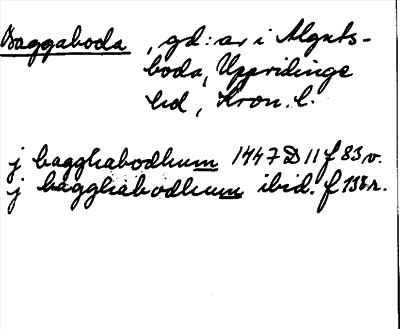 Baggaboda, gd:ar i Älguts-
boda, Uppvidinge
hd, Kron. l.
j bagghabodhum 1447 D 11 f 83 v.
j bagghabodhum ibid. f 138 r.